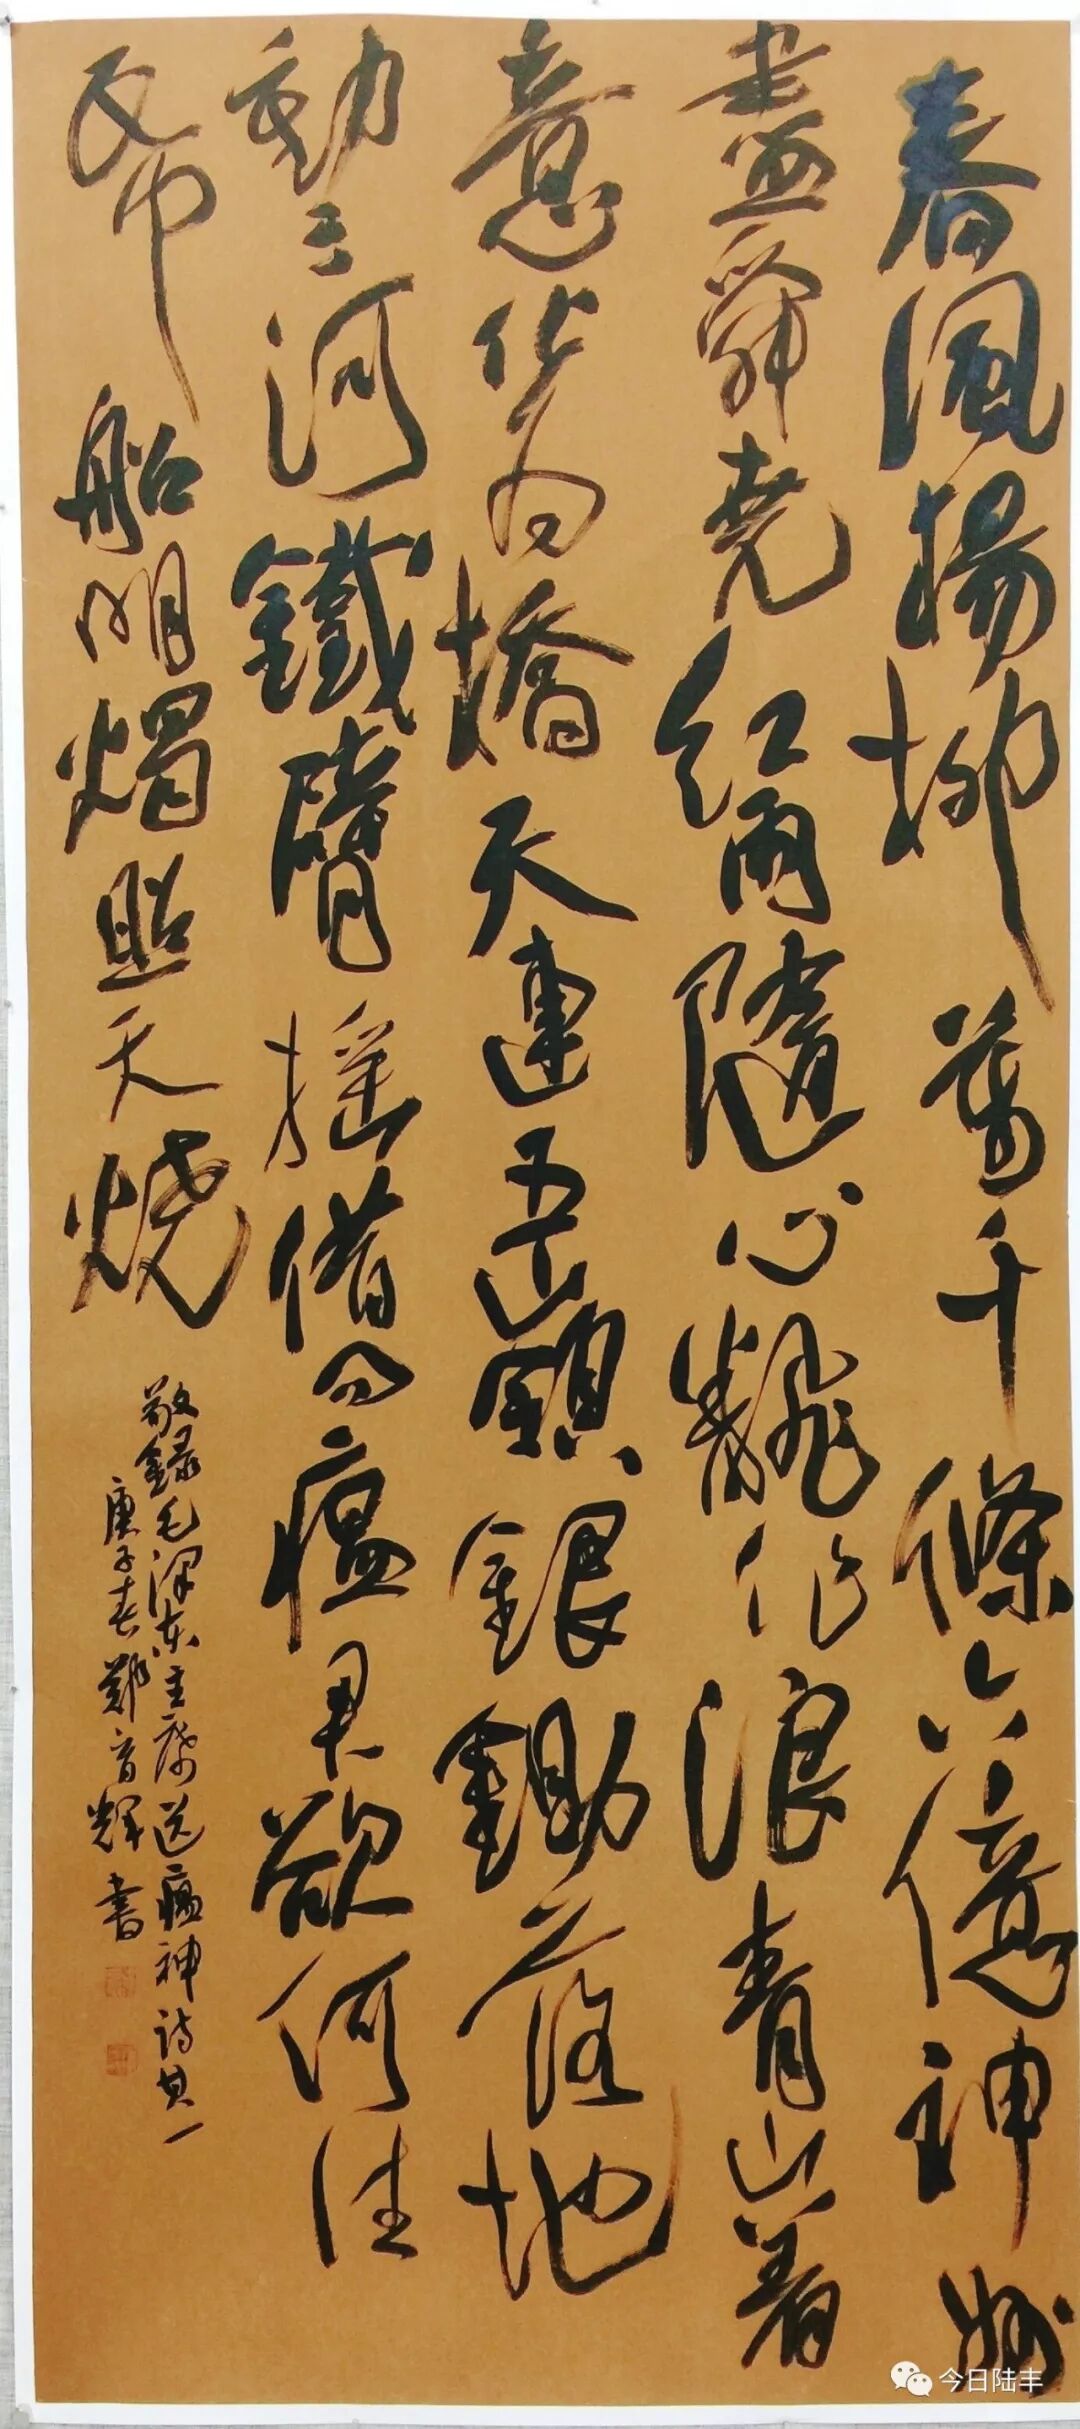 春風楊柳萬千條六億神州
盡舜堯紅雨隨心飜作浪青山着
意化为橋天連五嶺銀鋤落地
動三河鐵臂摇借问瘟君欲何往
帋船明燭照天燒
敬録毛泽东主席送瘟神诗其一
庚子春鄭音輝書
今日陆丰